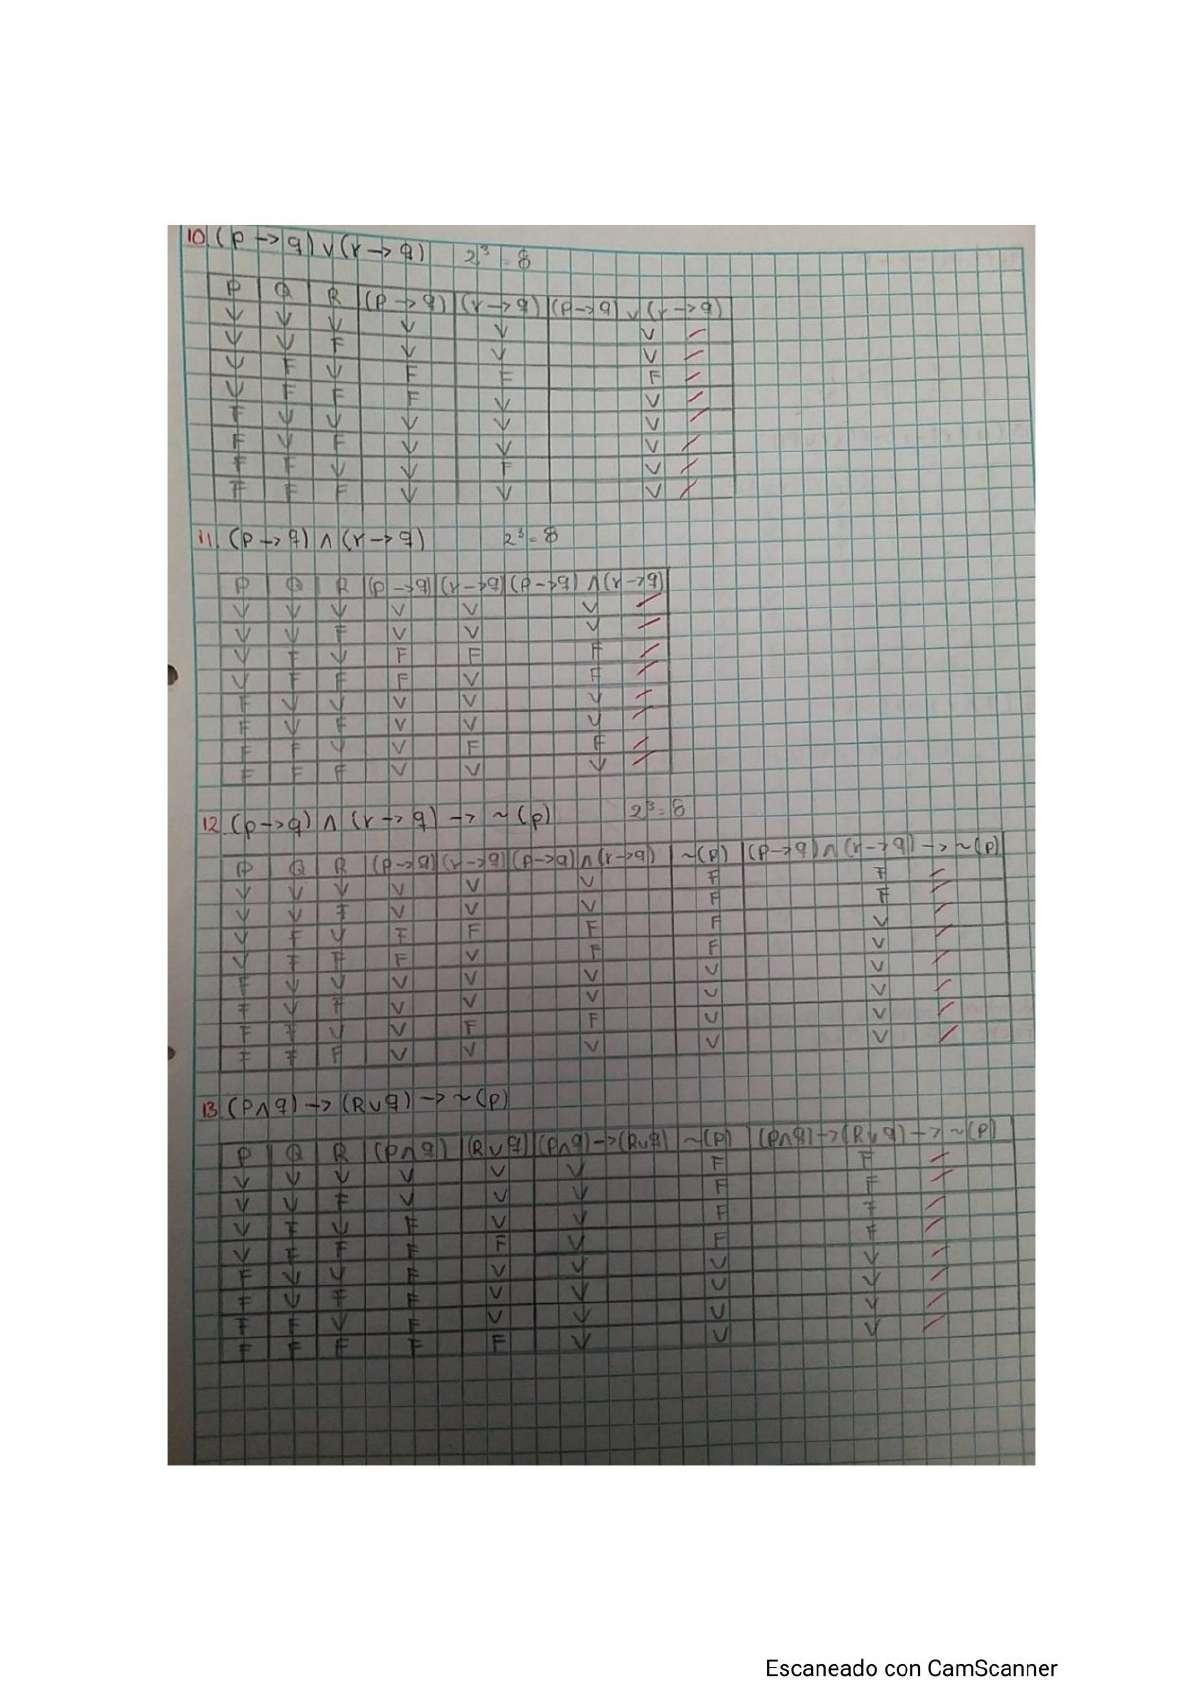 10. (p -> q) ∨ (r -> q) 2³ = 8
P Q R (p -> q) (r -> q) (p -> q) ∨ (r -> q)
V V V V V V
V V F V V V
V F V F F F
V F F F V V
F V V V V V
F V F V V V
F F V V F V
F F F V V V
11. (p -> q) ∧ (r -> q) 2³ = 8
P Q R (p -> q) (r -> q) (p -> q) ∧ (r -> q)
V V V V V V
V V F V V V
V F V F F F
V F F F V F
F V V V V V
F V F V V V
F F V V F F
F F F V V V
12. (p -> q) ∧ (r -> q) -> ~(p) 2³ = 8
P Q R (p -> q) (r -> q) (p -> q) ∧ (r -> q) ~(p) (p -> q) ∧ (r -> q) -> ~(p)
V V V V V V F F
V V F V V V F F
V F V F F F F V
V F F F V F F V
F V V V V V V V
F V F V V V V V
F F V V F F V V
F F F V V V V V
13. (P ∧ q) -> (R ∨ q) -> ~(p)
P Q R (p ∧ q) (R ∨ q) (p ∧ q) -> (R ∨ q) ~(p) (p ∧ q) -> (R ∨ q) -> ~(p)
V V V V V V F F
V V F V V V F F
V F V F V V F F
V F F F F V F F
F V V F V V V V
F V F F V V V V
F F V F V V V V
F F F F F V V V
Escaneado con CamScanner